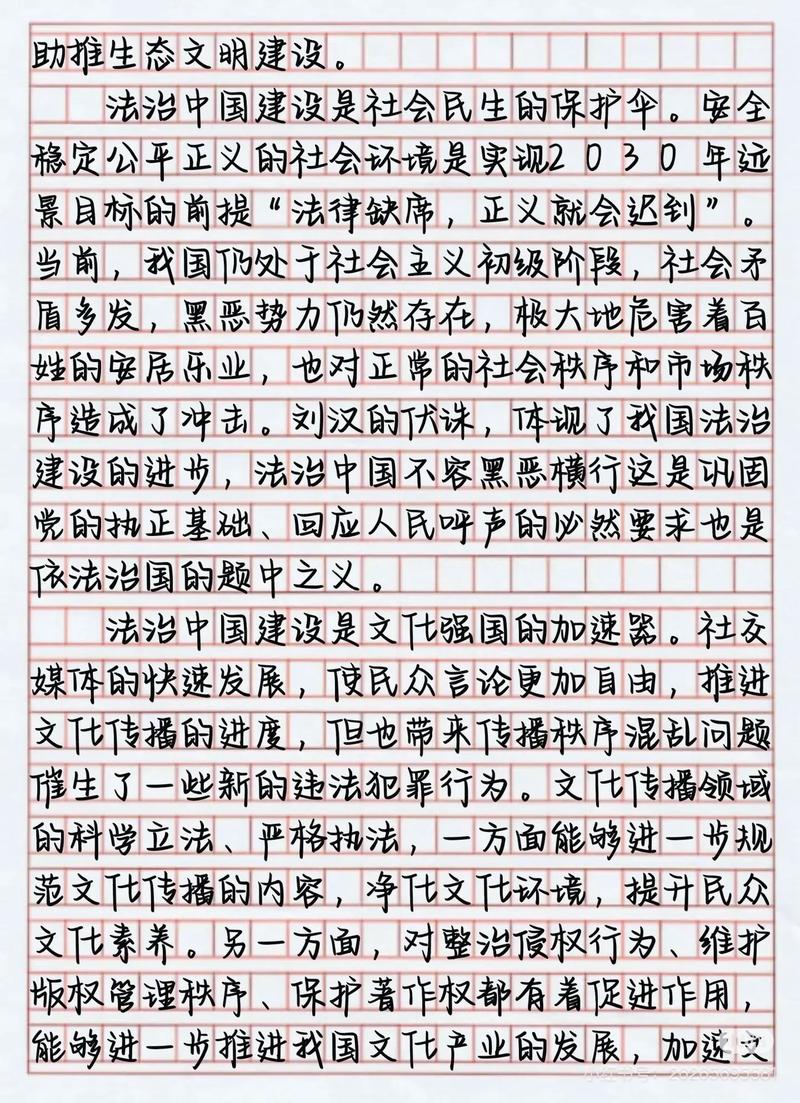 助推生态文明建设。
法治中国建设是社会民生的保护伞。安全
稳定公平正义的社会环境是实现2030年远
景目标的前提“法律缺席，正义就会迟到”。
当前，我国仍处于社会主义初级阶段，社会矛
盾多发，黑恶势力仍然存在，极大地危害着百
姓的安居乐业，也对正常的社会秩序和市场秩
序造成了冲击。刘汉的伏诛，体现了我国法治
建设的进步，法治中国不容黑恶横行这是巩固
党的执正基础、回应人民呼声的必然要求也是
依法治国的题中之义。
法治中国建设是文化强国的加速器。社交
媒体的快速发展，使民众言论更加自由，推进
文化传播的进度，但也带来传播秩序混乱问题
催生了一些新的违法犯罪行为。文化传播领域
的科学立法、严格执法，一方面能够进一步规
范文化传播的内容，净化文化环境，提升民众
文化素养。另一方面，对整治侵权行为、维护
版权管理秩序、保护著作权都有着促进作用，
能够进一步推进我国文化产业的发展，加速文